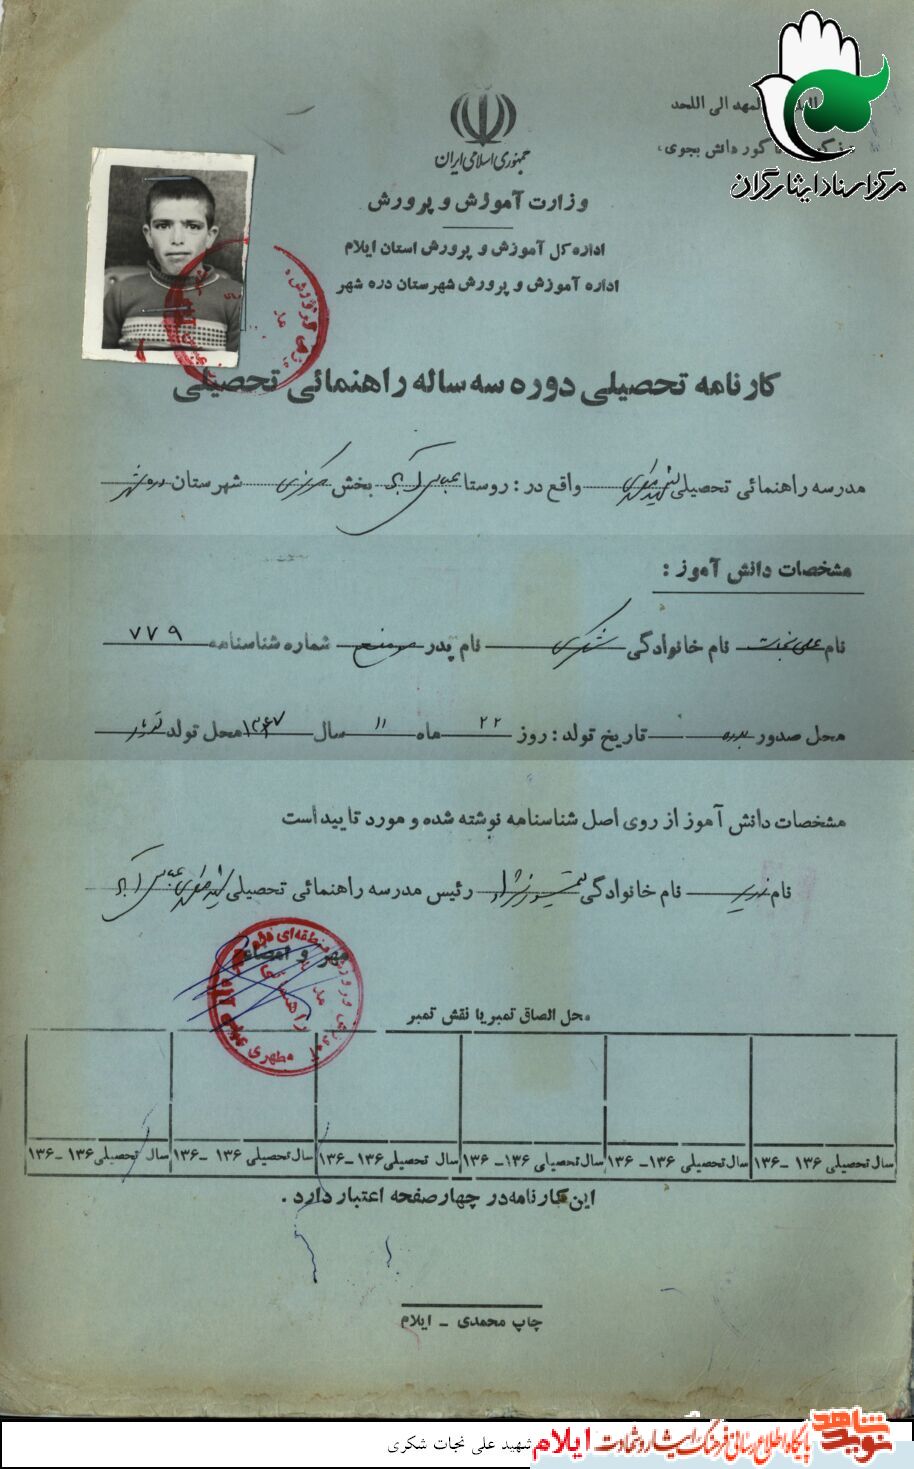 المهد الی اللحد
گور دانش بجوی،
مرکز اسناد ایثارگران
جمهوری اسلامی ایران
وزارت آموزش و پرورش
اداره کل آموزش و پرورش استان ایلام
اداره آموزش و پرورش شهرستان دره شهر
کارنامه تحصیلی دوره سه ساله راهنمائی تحصیلی
مدرسه راهنمائی تحصیلی واقع در : روستا عباس آباد بخش مرکزی شهرستان دره شهر
مشخصات دانش آموز :
نام علی نجات نام خانوادگی شکری نام پدر شماره شناسنامه ۷۷۹
محل صدور بدره تاریخ تولد : روز ۲۲ ماه ۱۱ سال ۱۳۴۷ محل تولد
مشخصات دانش آموز از روی اصل شناسنامه نوشته شده و مورد تایید است
نام نام خانوادگی رئیس مدرسه راهنمائی تحصیلی عباس آباد
مهر و امضاء
محل الصاق تمبر یا نقش تمبر
سال تحصیلی ۱۳۶ -۱۳۶ سال تحصیلی ۱۳۶ -۱۳۶ سال تحصیلی ۱۳۶ -۱۳۶ سال تحصیلی ۱۳۶ -۱۳۶ سال تحصیلی ۱۳۶ -۱۳۶ سال تحصیلی ۱۳۶ -۱۳۶
این کارنامه در چهار صفحه اعتبار دارد .
چاپ محمدی - ایلام
نوید شاهد پایگاه اطلاع رسانی فرهنگ ایثار و شهادت ایلام شهید علی نجات شکری